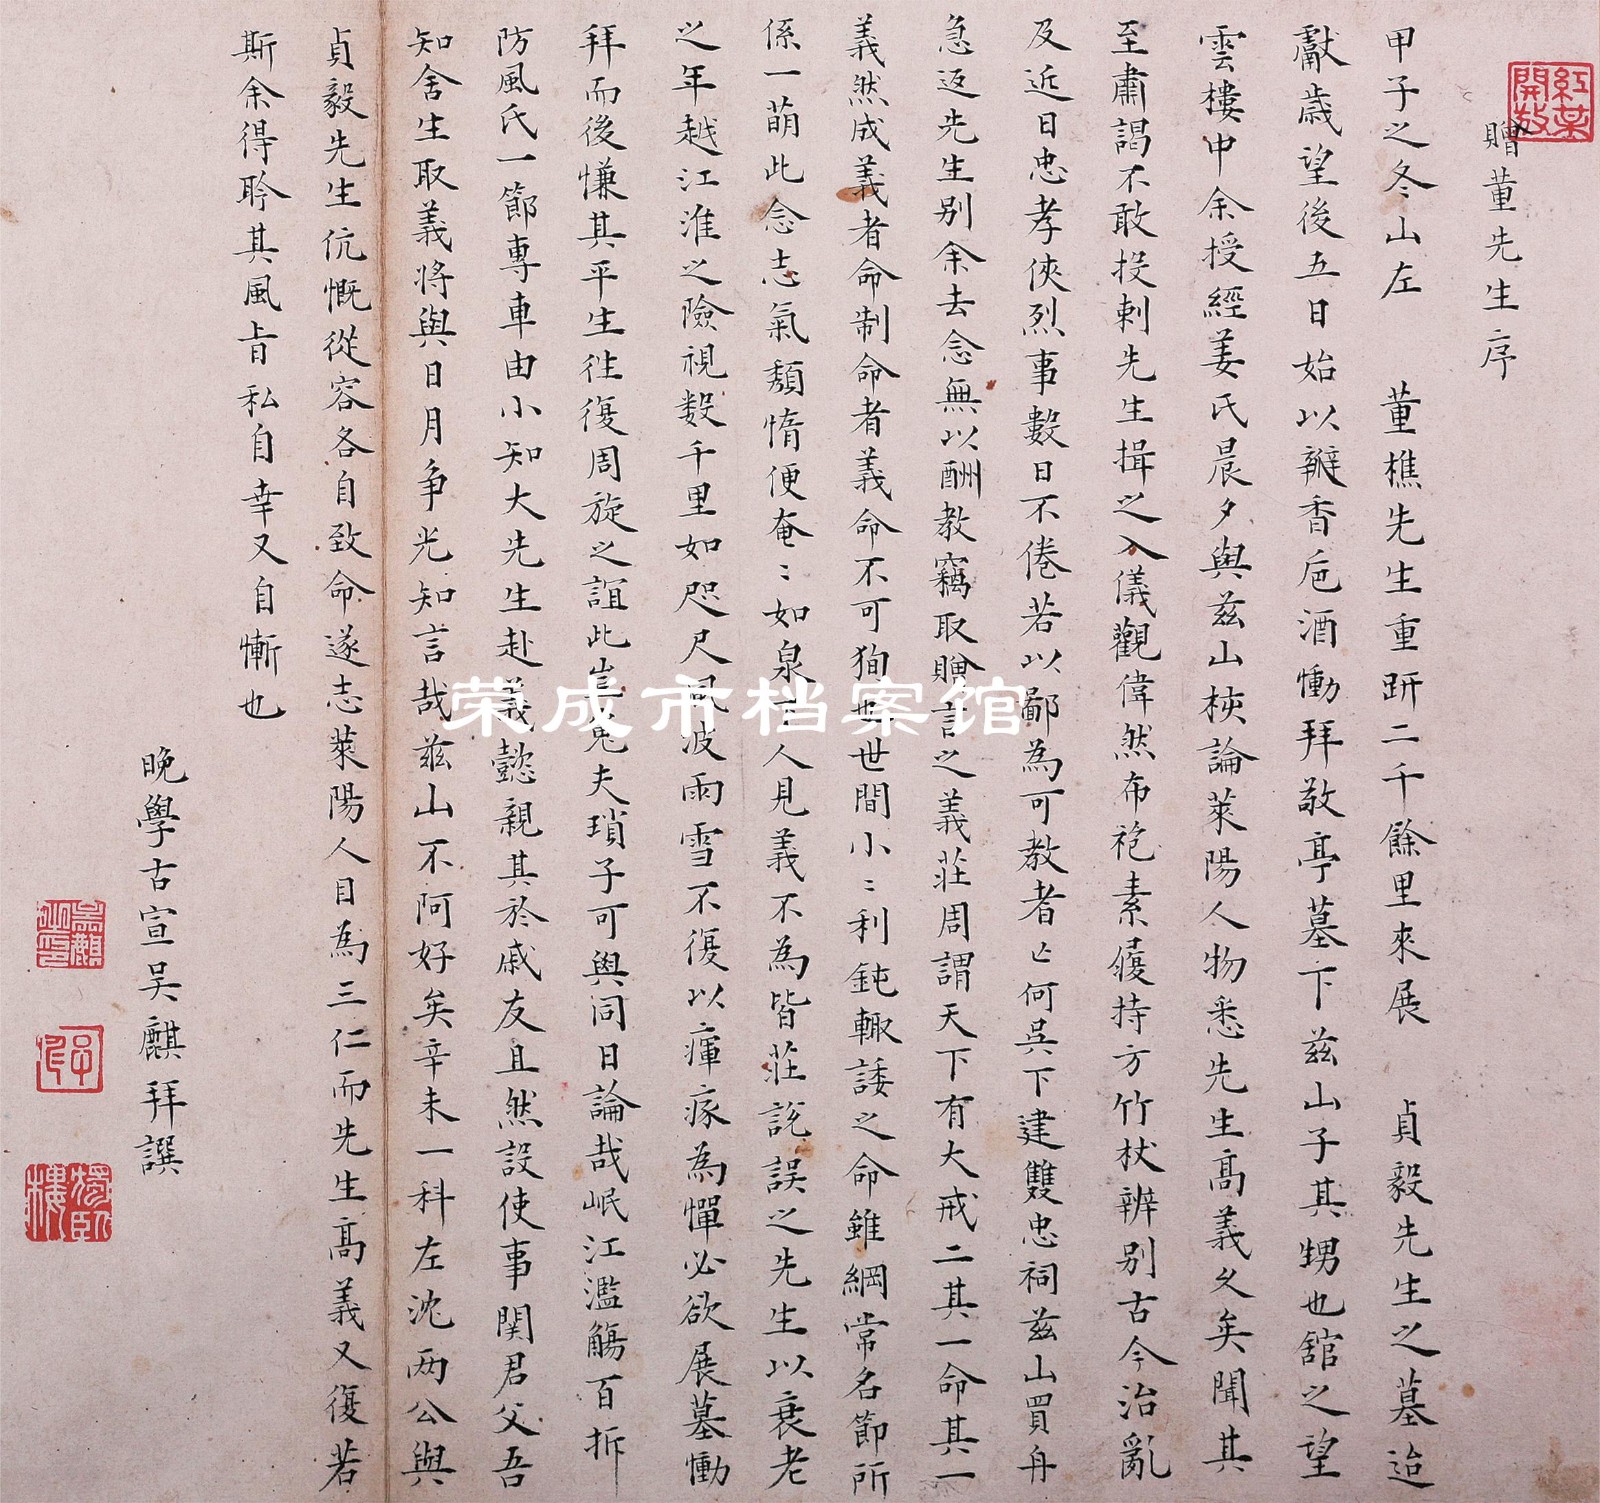 贈董先生序
甲子之冬山左　董樵先生重趼二千餘里來展　貞毅先生之墓迨
獻歲望後五日始以瓣香卮酒慟拜敬亭墓下茲山子其甥也舘之望
雲樓中余授經姜氏晨夕與茲山梜論萊陽人物悉先生高義久矣聞其
至肅謁不敢投刺先生揖之入儀觀偉然布袍素履持方竹杖辨别古今治亂
及近日忠孝俠烈事數日不倦若以鄙為可教者亡何吳下建雙忠祠茲山買舟
急返先生别余去念無以酬教竊取贈言之義莊周謂天下有大戒二其一命其一
義然成義者命制命者義命不可狥也世間小〻利鈍輙諉之命雖綱常名節所
係一萌此念志氣頹惰便奄〻如泉下人見義不為皆莊說誤之先生以衰老
之年越江淮之險視数千里如咫尺風波雨雪不復以瘇瘃為憚必欲展墓慟
拜而後慊其平生徃復周旋之誼此豈鬼夫瑣子可與同日論哉岷江濫觴百折
防風氏一節專車由小知大先生赴義懿親其於戚友且然設使事関君父吾
知舍生取義將與日月争光知言哉茲山不阿好矣辛未一科左沈两公與
貞毅先生伉慨從容各自致命遂志萊陽人目為三仁而先生高義又復若
斯余得聆其風旨私自幸又自慚也
晚學古宣吴麒拜譔
荣成市档案馆